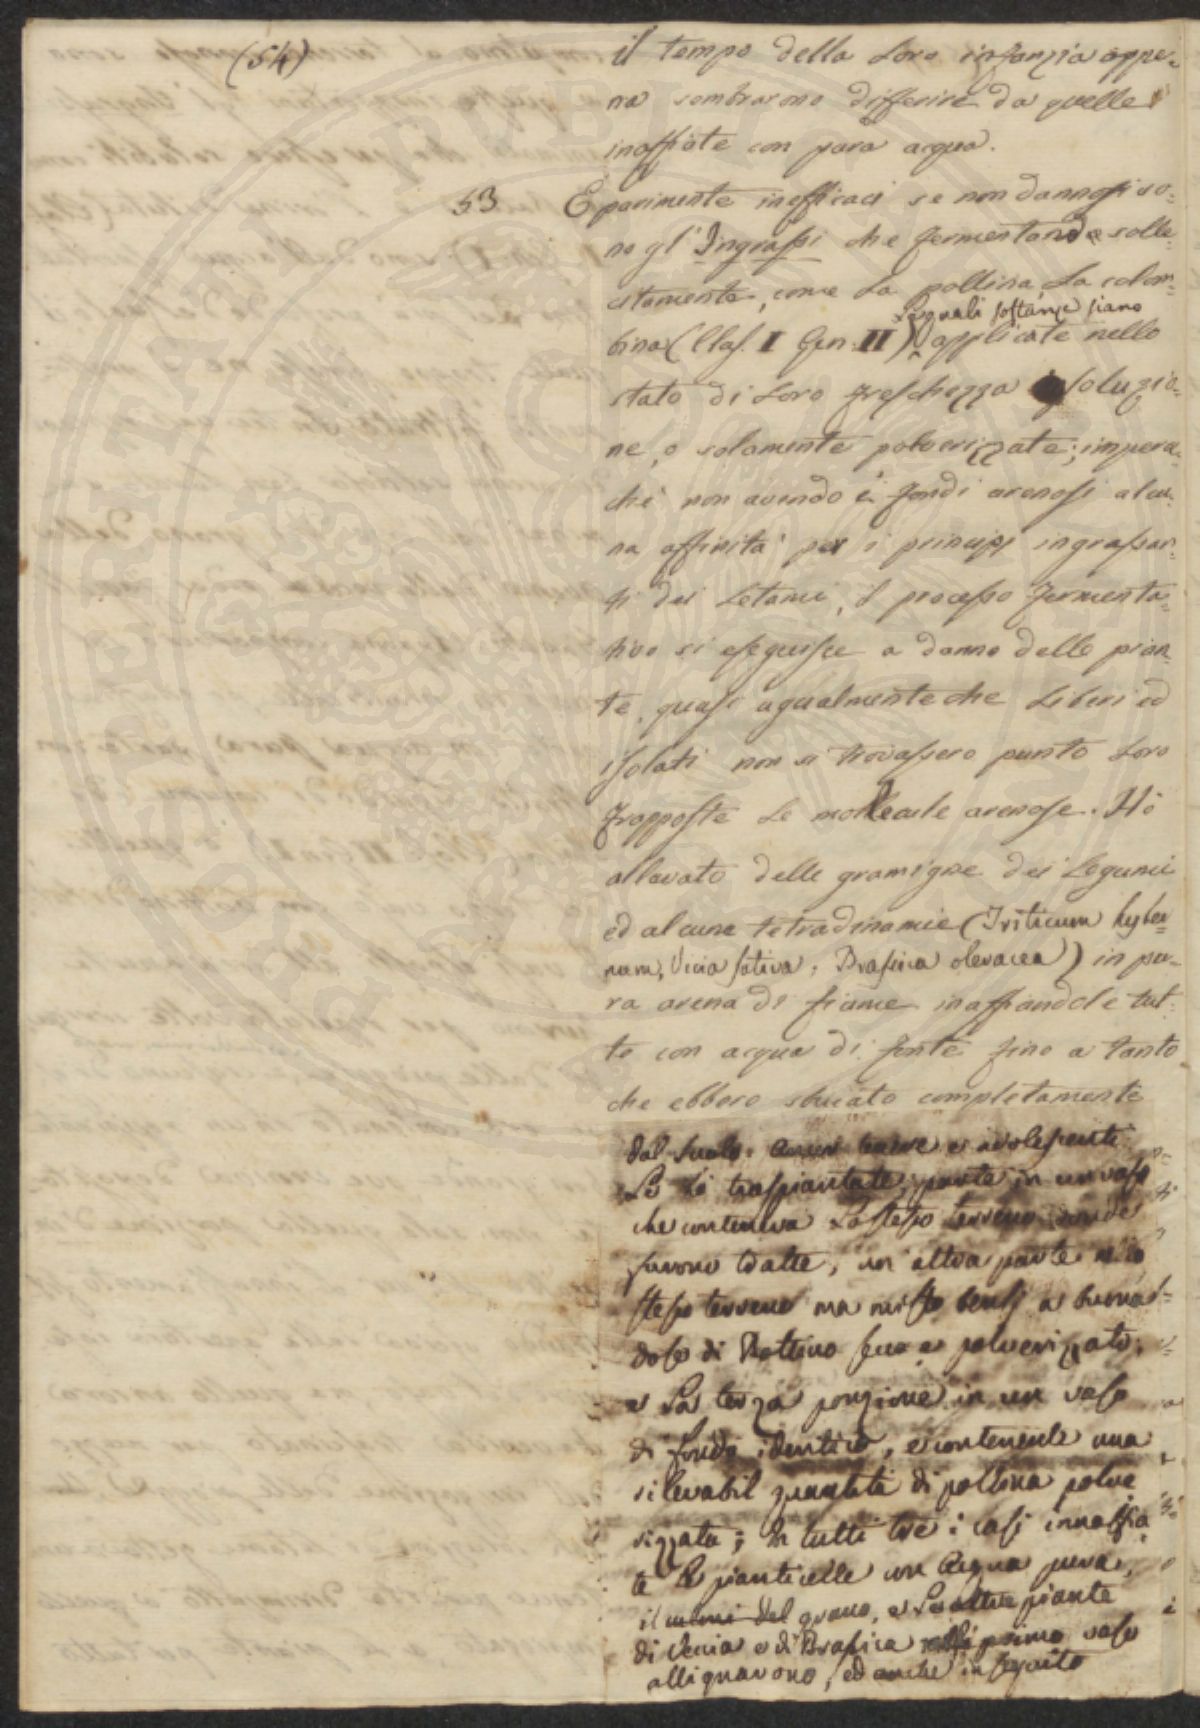 (54)
il tempo della loro infanzia appe=
na sembrarono differire da quelle
inaffiate con pura acqua.
53 È parimente inefficaci se non dannosi so=
no gl' Ingrassi che fermentando solle=
citamente, come la pollina, la colom=
bina (Clas. I Gen. II) applicate nello
le quali sostanze siano
stato di loro freschezza soluzio=
ne, o solamente polverizzate; imperoc=
chè non avendo i fondi arenosi alcu=
na affinità per i principj ingrassan=
ti dei letami, il processo fermenta=
tivo si eseguisce a danno delle pian=
te, quasi ugualmente che liberi ed
isolati non si trovassero punto loro
frapposte le mollecule arenose. Hò
allevato delle gramigne dei legumi
ed alcune tetradinamie (Triticum hyber=
num, Vicia sativa, Brassica oleracea) in pu=
ra arena di fiume inaffiandole tut=
te con acqua di fonte fino a tanto
che ebbero stuiato completamente
dal suolo. tenere e adolescenti
le hò traspiantate, parte in un vaso
che conteneva lo stesso terreno onde
furono tratte, un'altra parte
stesso terreno ma misto bensì a buona
dose di Bottino secco e polverizzato;
e la terza porzione in un vaso
di fondo identico, e contenente una
rilevabil quantità di pollina polve
rizzata; In tutti tre i casi innaffia
te le pianticelle con acqua pura,
il del grano, e le altre piante
di Veccia e di Brassica primo vaso
allignarono, ed anche in seguito